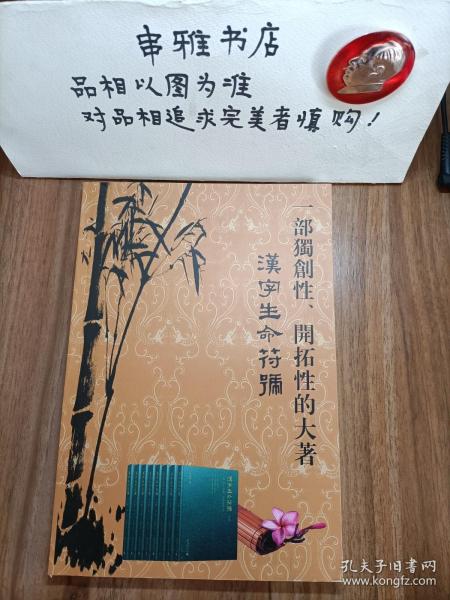 串雅书店
品相以图为准
对品相追求完美者慎购！
一部獨創性、開拓性的大著
漢字生命符號
孔夫子旧书网
www.kongfz.com